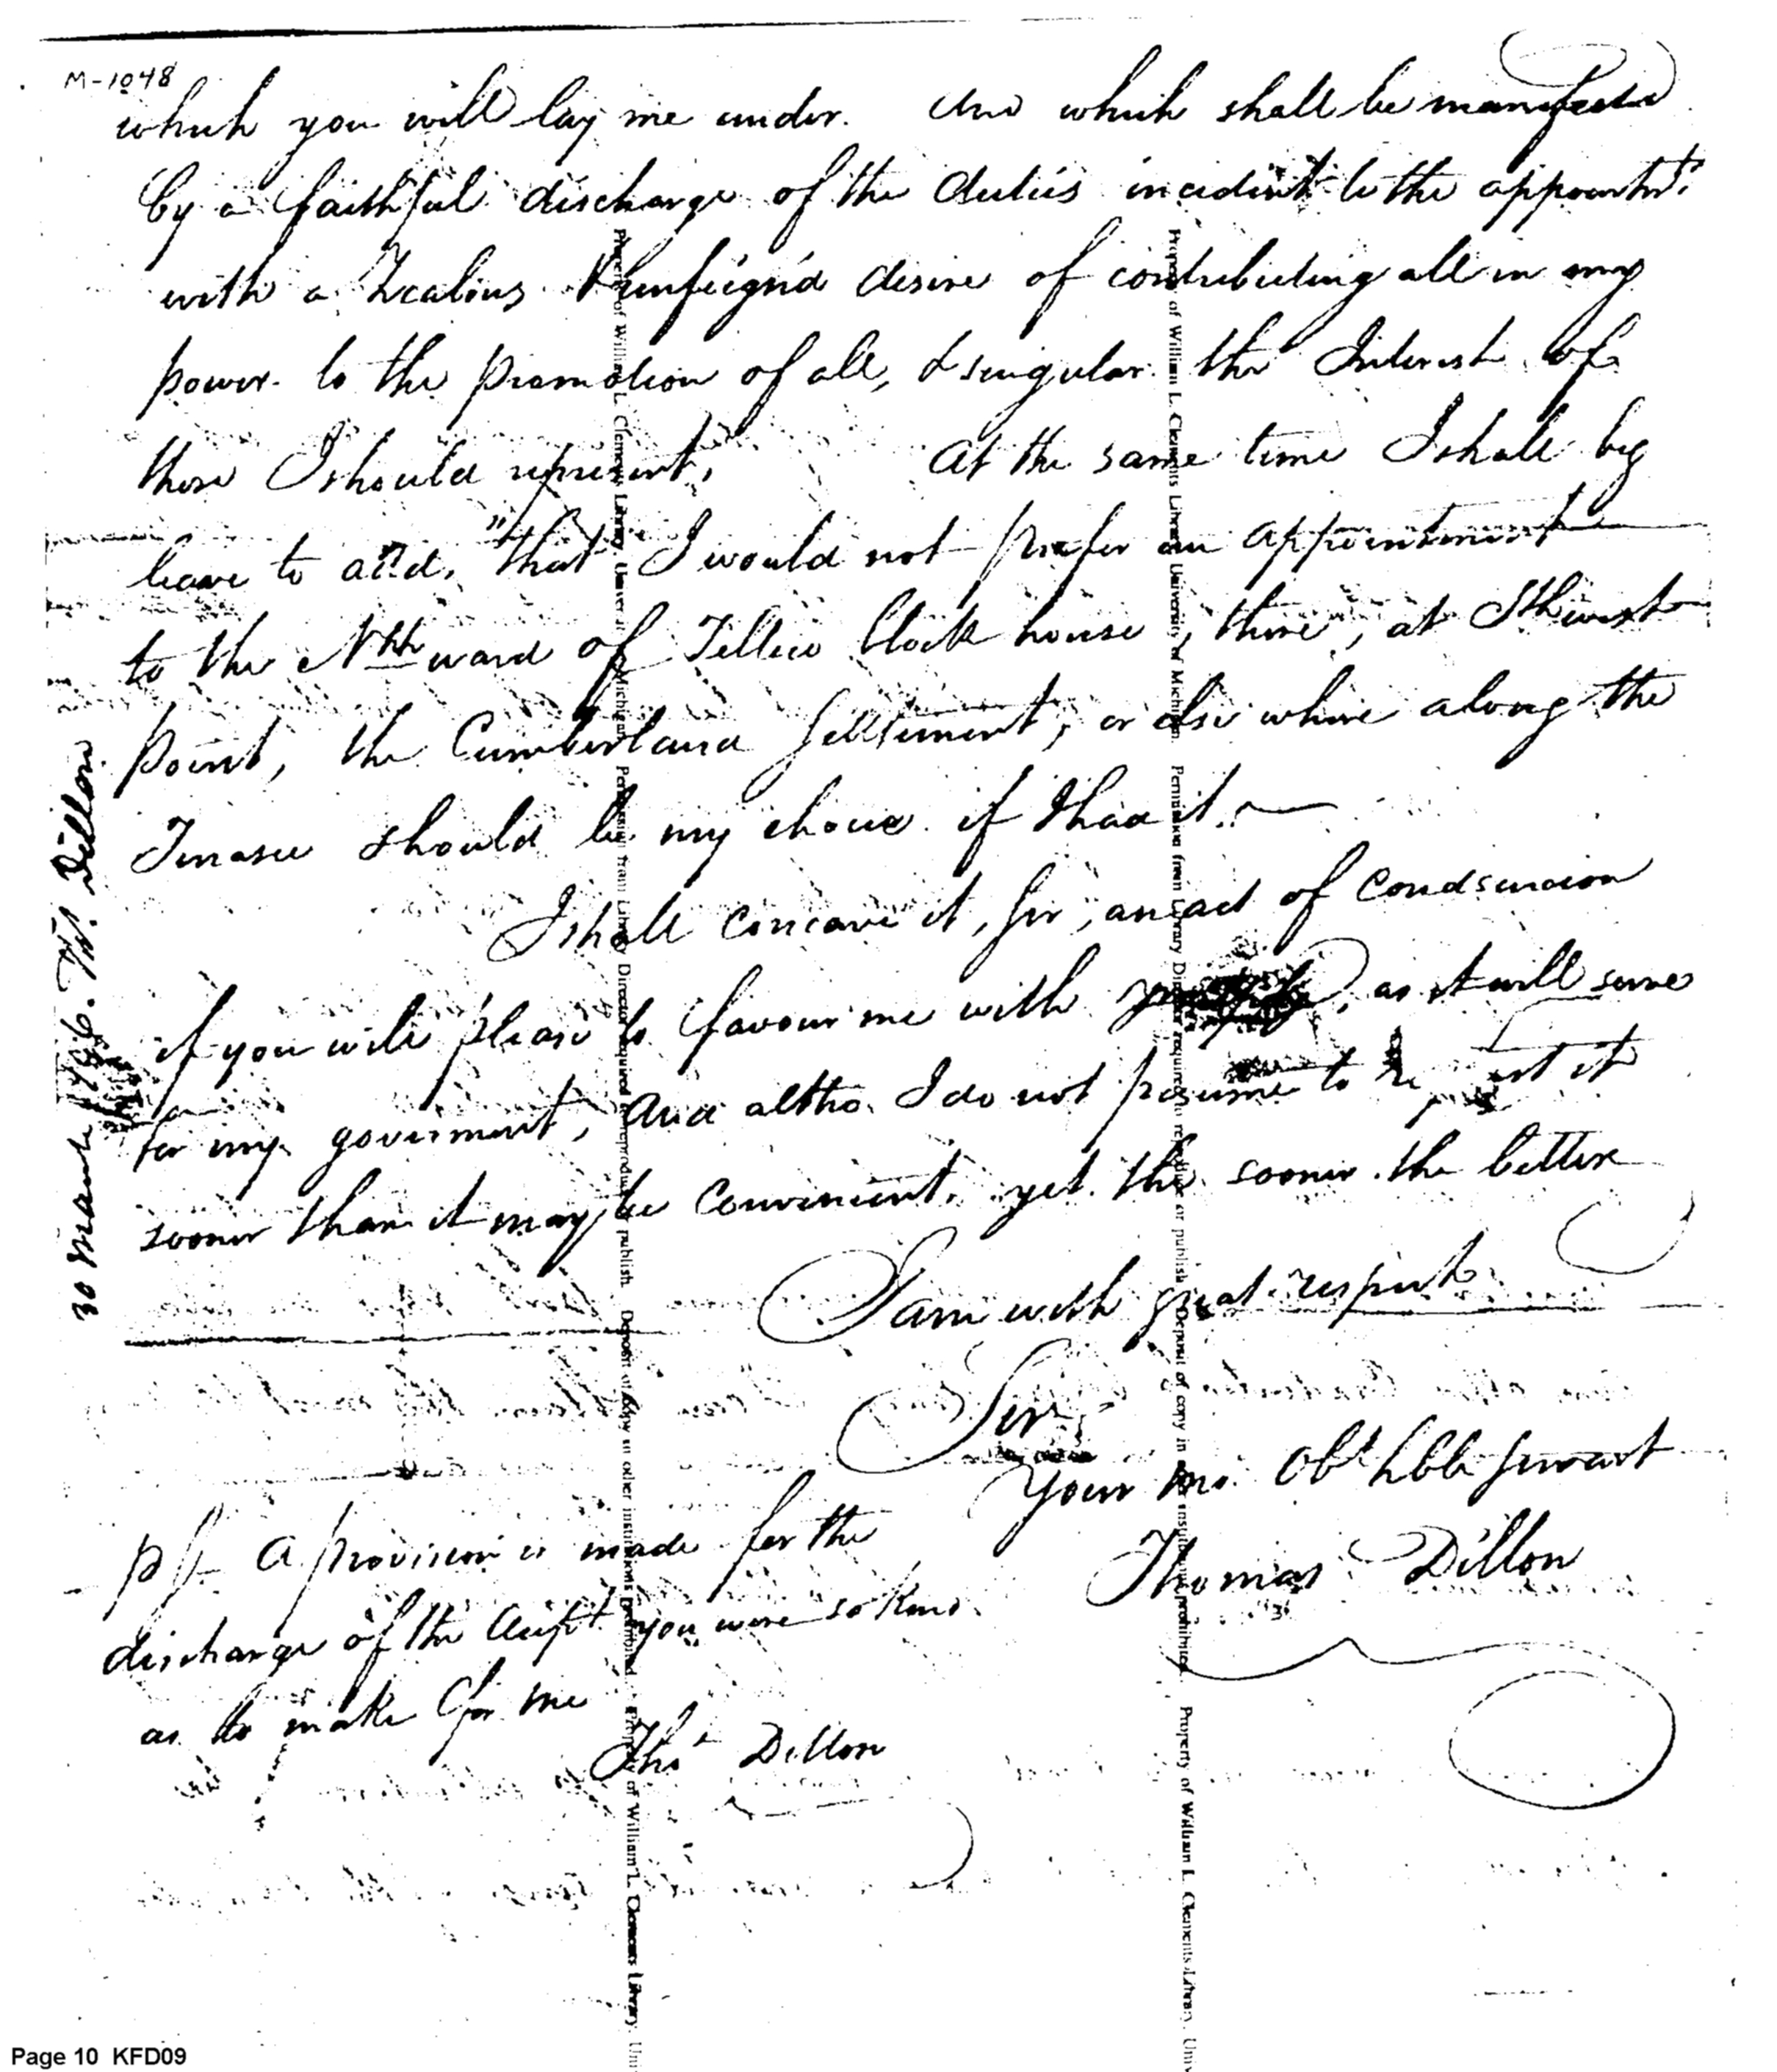 M-1048
which you will lay me under. And which shall be manifested
by a faithful discharge of the duties incident to the appointmt.
with a Zealous & unfeign'd desire of contributing all in my
power to the promotion of all, & singular the Interest of
those I should represent, At the same time I shall beg
leave to add, "that I would not prefer an appointment
to the Nthward of Tellico Block house, there, at
point, the Cumberland Settlement, or else where along the
Tenasee should be my choice if I had it.
I shall conceave it, Sir, an act of
if you will please to favour me with as it will serve
for my goverment, and altho. I do not to it
sooner than it may be convenient. yet the sooner the better
I am with great respect
Sir
Your mo. Obt hble servant
Thomas Dillon
ps- A provision is made for the
discharge of the you were so kind
as to make for me
Thos Dillon
30 March 1796. Ths. Dillon
Property of William L. Clements Library, University of Michigan. Permission from Library Director required to reproduce or publish. Deposit of copy in other institutions prohibited. Property of William L. Clements Library. Uni
Property of William L. Clements Library, University of Michigan. Permission from Library Director required to reproduce or publish. Deposit of copy in other institutions prohibited. Property of William L. Clements Library. Univ
Page 10 KFD09